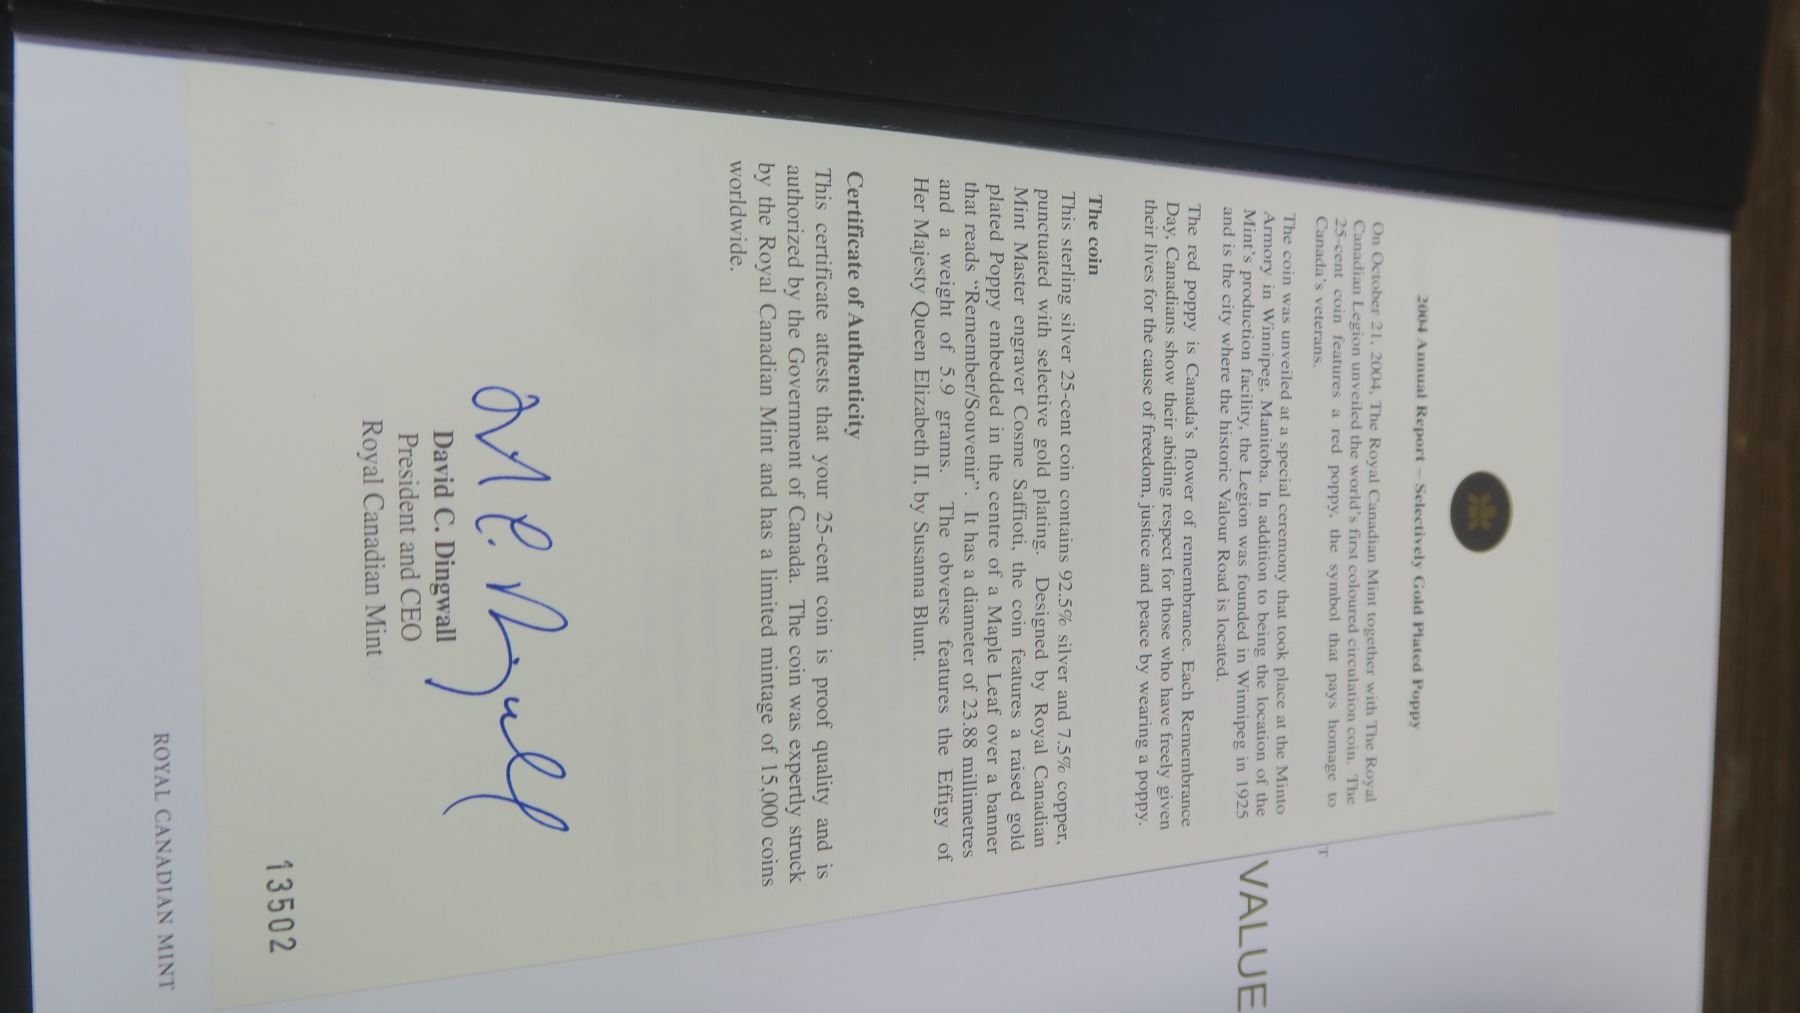 2004 Annual Report – Selectively Gold Plated Poppy
On October 21, 2004, The Royal Canadian Mint together with The Royal
Canadian Legion unveiled the world's first coloured circulation coin. The
25-cent coin features a red poppy, the symbol that pays homage to
Canada's veterans.
The coin was unveiled at a special ceremony that took place at the Minto
Armory in Winnipeg, Manitoba. In addition to being the location of the
Mint's production facility, the Legion was founded in Winnipeg in 1925
and is the city where the historic Valour Road is located.
The red poppy is Canada's flower of remembrance. Each Remembrance
Day, Canadians show their abiding respect for those who have freely given
their lives for the cause of freedom, justice and peace by wearing a poppy.
The coin
This sterling silver 25-cent coin contains 92.5% silver and 7.5% copper,
punctuated with selective gold plating. Designed by Royal Canadian
Mint Master engraver Cosme Saffioti, the coin features a raised gold
plated Poppy embedded in the centre of a Maple Leaf over a banner
that reads "Remember/Souvenir". It has a diameter of 23.88 millimetres
and a weight of 5.9 grams. The obverse features the Effigy of
Her Majesty Queen Elizabeth II, by Susanna Blunt.
Certificate of Authenticity
This certificate attests that your 25-cent coin is proof quality and is
authorized by the Government of Canada. The coin was expertly struck
by the Royal Canadian Mint and has a limited mintage of 15,000 coins
worldwide.
David C. Dingwall
President and CEO
Royal Canadian Mint
13502
T
VALUE
ROYAL CANADIAN MINT